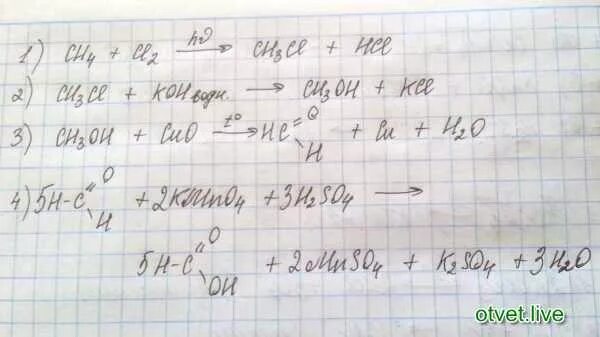 1) CH4 + Cl2 hν → CH3Cl + HCl
2) CH3Cl + KOH водн. → CH3OH + KCl
3) CH3OH + CuO t° → HC=O H + Cu + H2O
4) 5H-C=O H + 2KMnO4 + 3H2SO4 →
5H-C=O OH + 2MnSO4 + K2SO4 + 3H2O
otvet.live